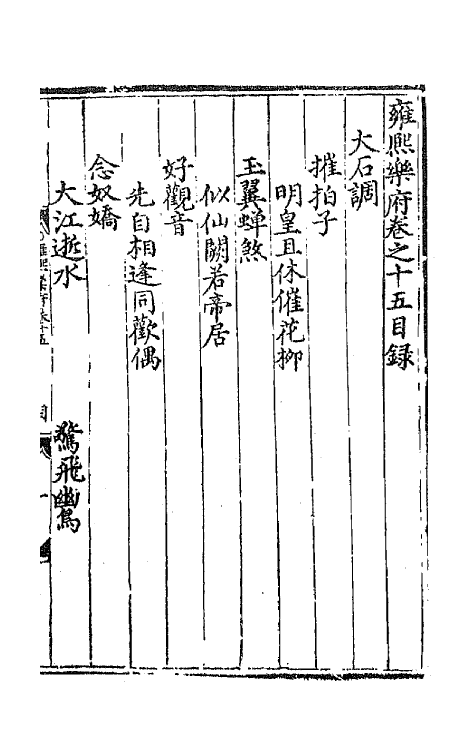 雍熙樂府卷之十五目録
大石調
摧拍子
明皇且休催花柳
玉翼蟬煞
似仙闕若帝居
好觀音
先自相逢同歡偶
念奴嬌
大江逝水 驚飛幽鳥
雍熙樂府卷十五 目 一